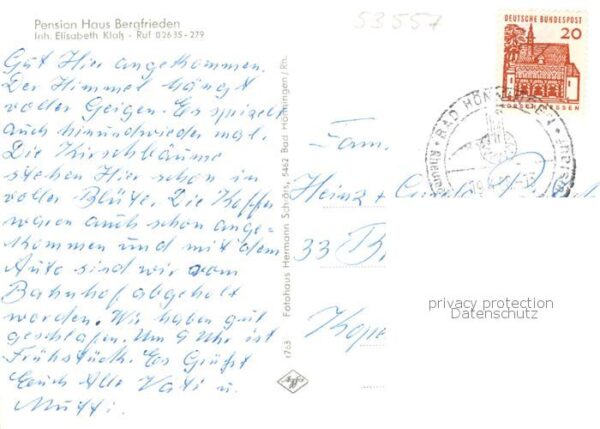 Pension Haus Bergfrieden
Inh. Elisabeth Klaß - Ruf 02635-279
53557
DEUTSCHE BUNDESPOST
20
LORSCH HESSEN
BAD HÖNNINGEN
Gut Hier angekommen.
Der Himmel hängt
voller Geigen. Es spielt
auch hin und wieder mal.
Die Kirschbäume
stehen Hier schon in
voller Blüte. Die Koffer
waren auch schon ange-
kommen und mit dem
Auto sind wir vom
Bahnhof abgeholt
worden. Wir haben gut
geschlafen. Um 9 Uhr ist
Frühstück. Es Grüßt
Euch Alle Vati u.
Mutti.
Fotohaus Hermann Schwärs, 5462 Bad Hönningen/Rh.
1763
Agfa
Fam.
Heinz +
33 B
privacy protection
Datenschutz